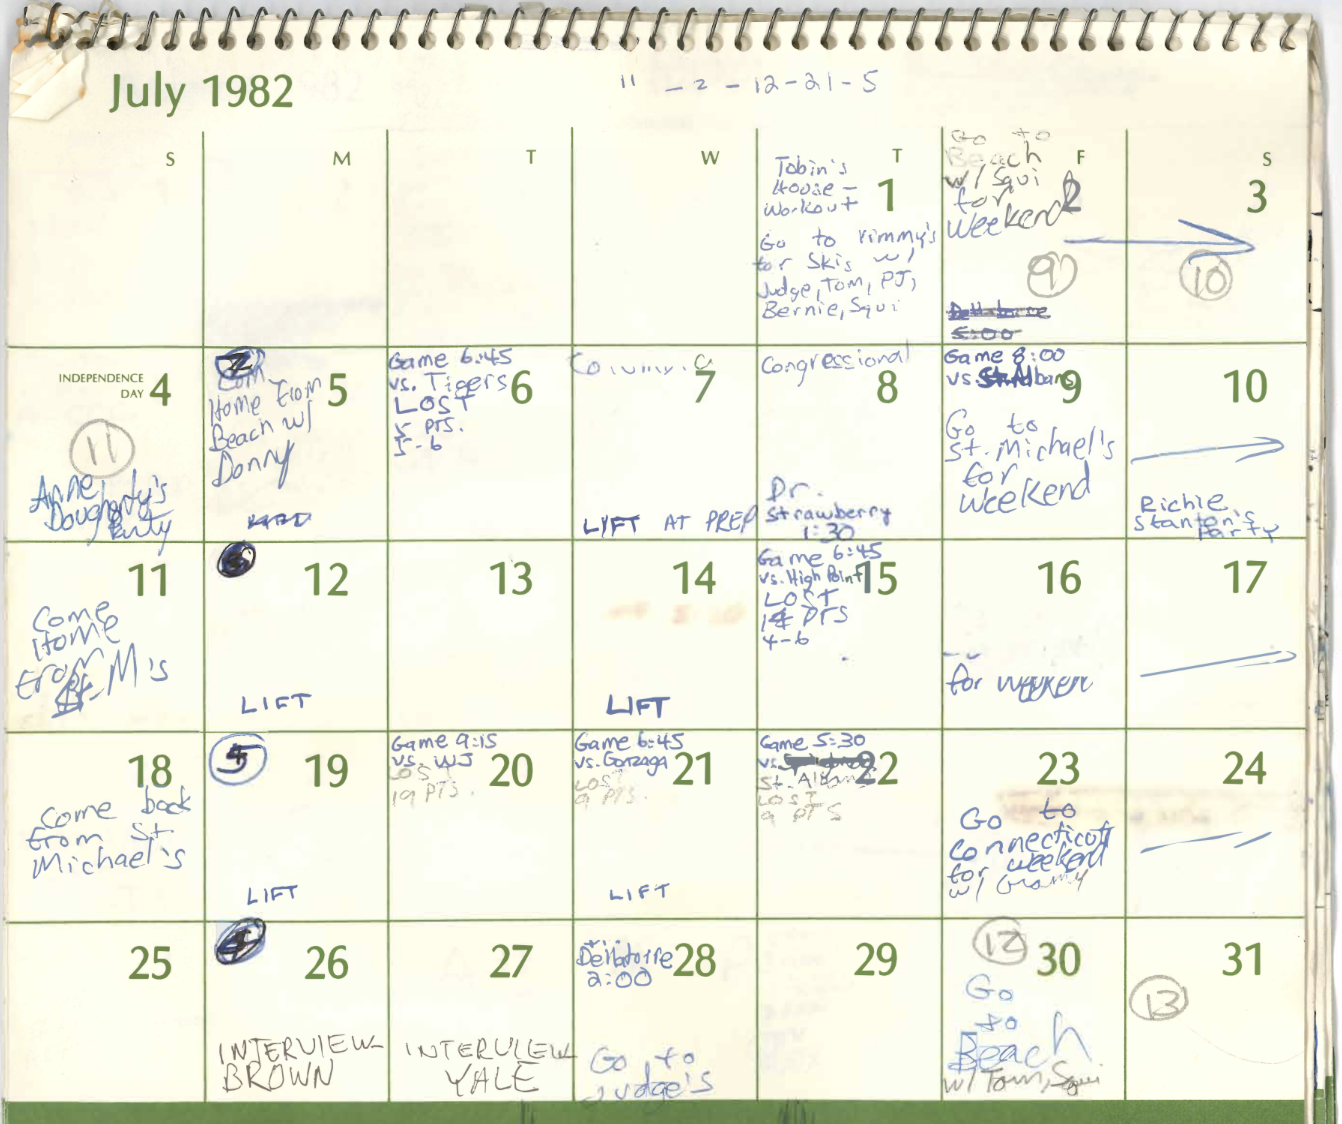 July 1982
11 - 2 - 12-21-5
S
M
T
W
T
F
S
Tobin's
House -
Workout
1
Go to Timmy's
for Skis w/
Judge, Tom, PJ,
Bernie, Squi
Go to
Beach
w/ Squi
for
Weekend
2
9
5:00
3
10
INDEPENDENCE
DAY 4
11
Anne
Dougherty's
Party
5
Come
Home From
Beach w/
Donny
6
Game 6:45
vs. Tigers
LOST
5 PTS.
5-6
7
LIFT AT PREP
8
Congressional
Dr.
Strawberry
1:30
9
Game 8:00
vs. St. Albans
Go to
St. Michael's
for
Weekend
10
Richie
Stanton's
Party
11
Come
Home
From
St. M's
12
LIFT
13
14
LIFT
15
Game 6:45
vs. High Point
LOST
PTS
4-6
16
for
17
18
Come back
from St.
Michael's
19
LIFT
20
Game 9:15
vs. WJ
LOST
19 PTS.
21
Game 6:45
vs. Gonzaga
LOST
9 PTS.
LIFT
22
Game 5:30
vs.
St. Albans
LOST
9 PTS
23
Go to
Connecticut
for weekend
w/
24
25
26
INTERVIEW
BROWN
27
INTERVIEW
YALE
28
2:00
Go to
Judge's
29
12
30
Go
to
Beach
w/ Tom, Squi
31
13